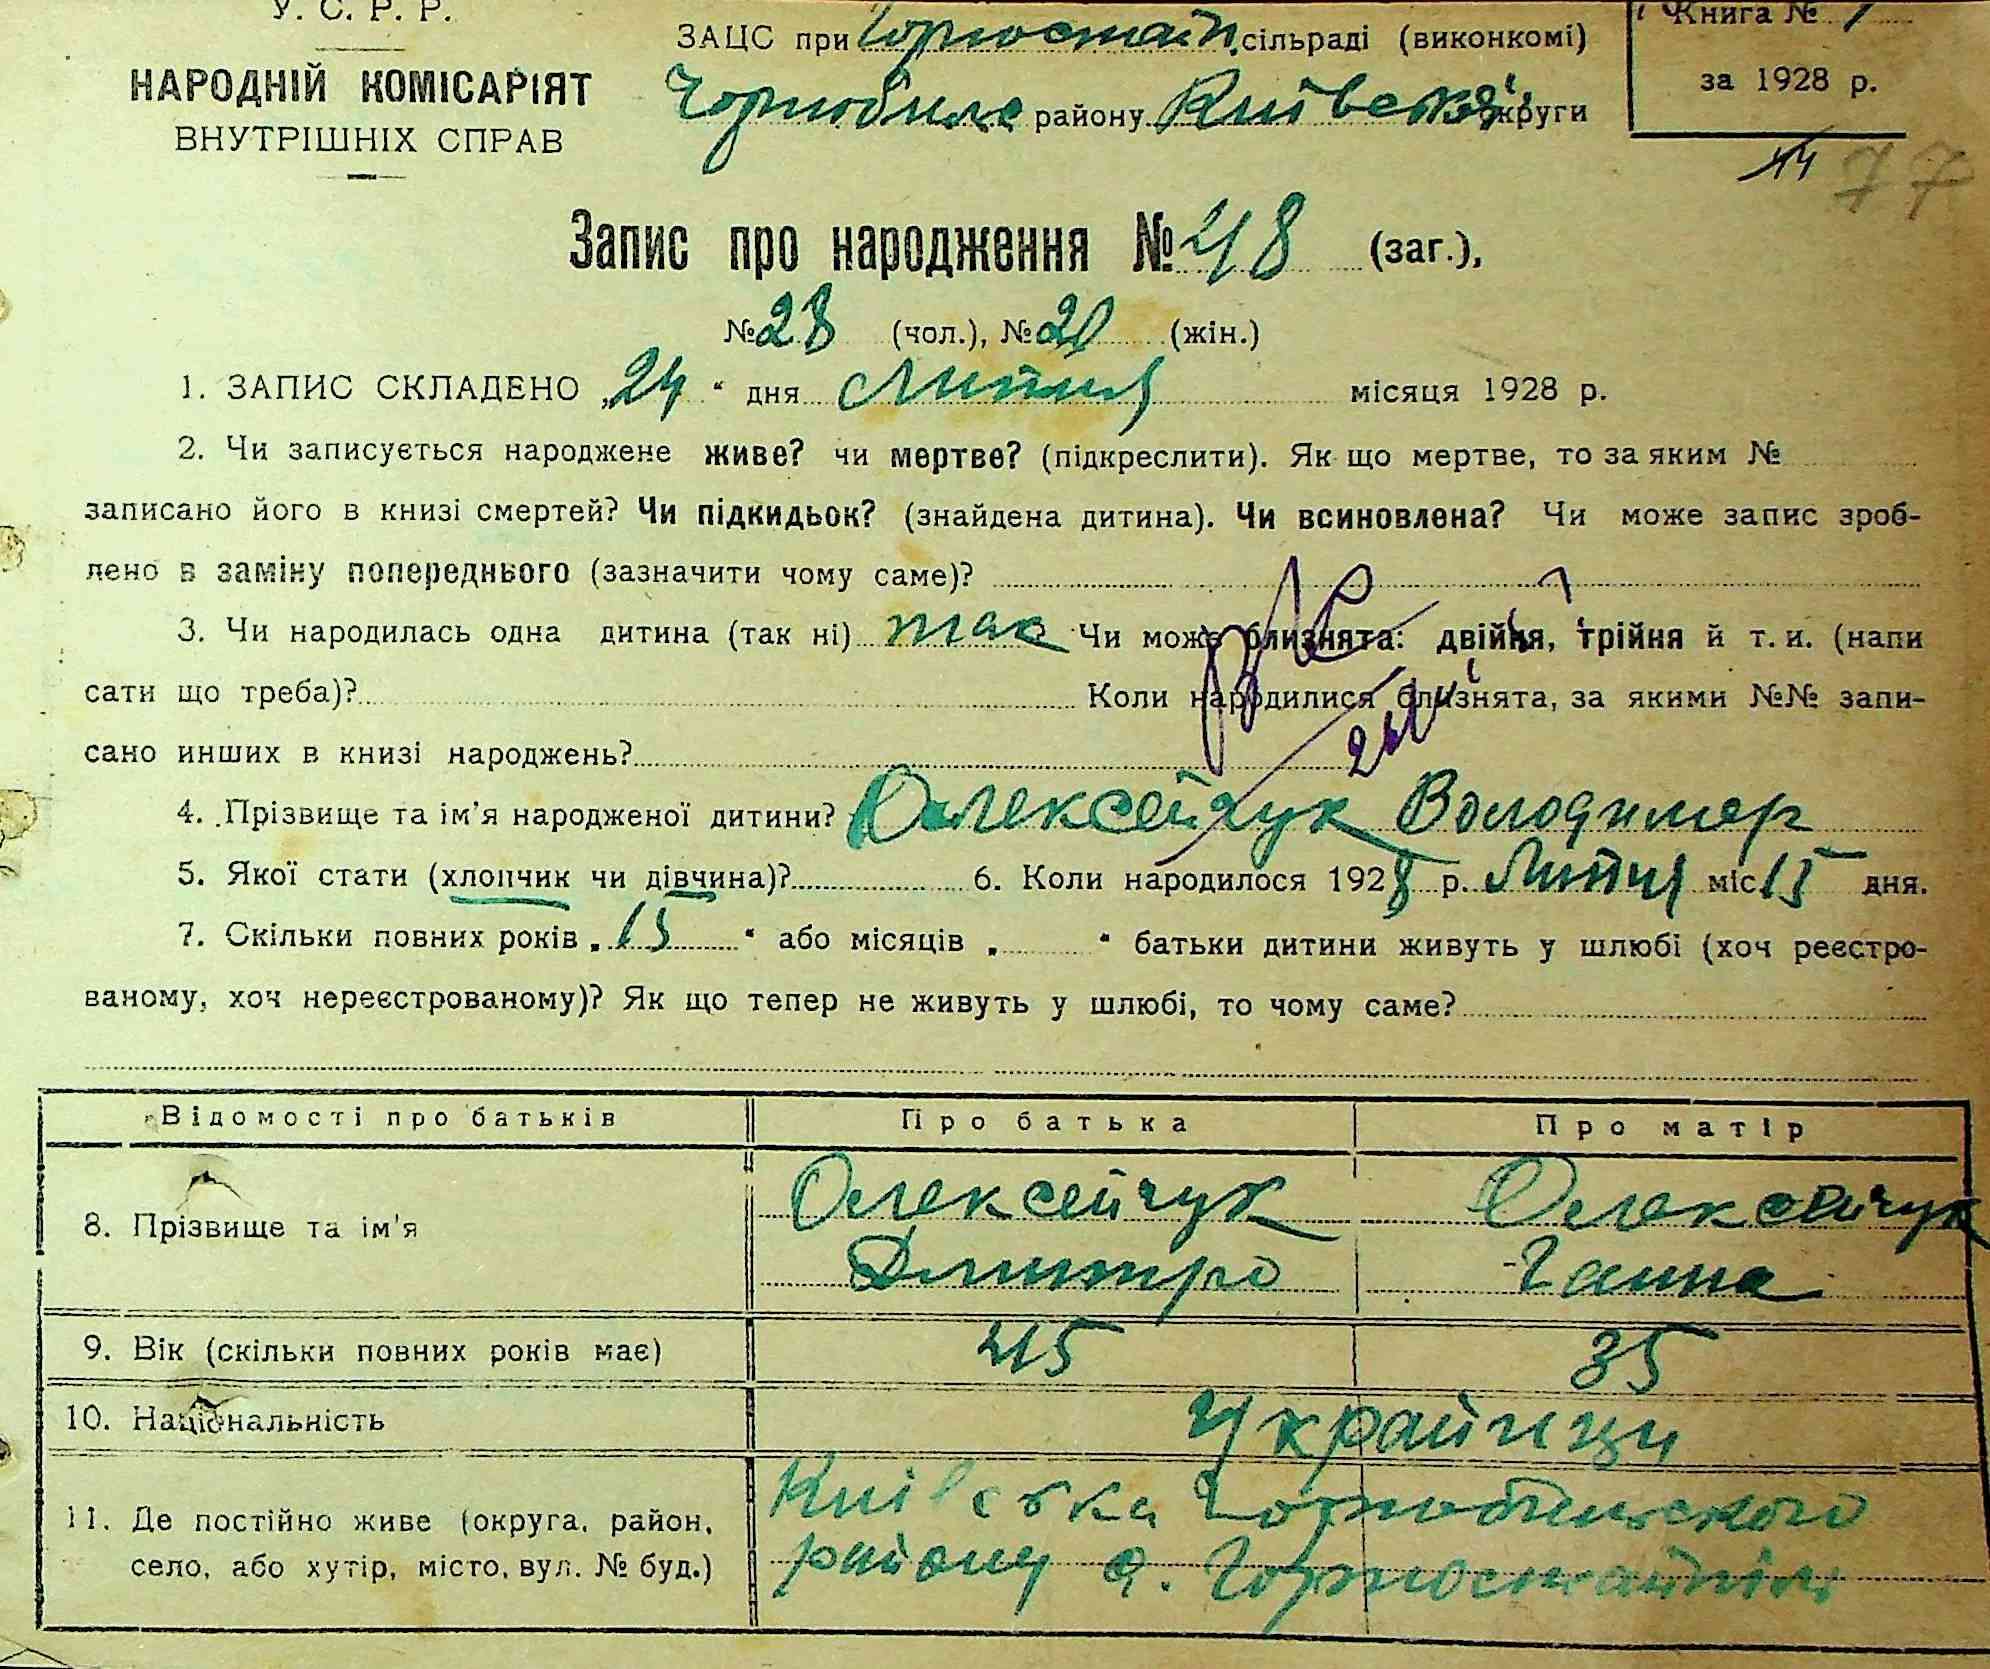 У. С. Р. Р.
НАРОДНІЙ КОМІСАРІЯТ
ВНУТРІШНІХ СПРАВ
ЗАЦС при Горностайп. сільраді (виконкомі)
Чорнобил. району Київської округи
Книга №
за 1928 р.
44 77
Запис про народження № 48 (заг.),
№ 28 (чол.), № 20 (жін.)
1. ЗАПИС СКЛАДЕНО „24“ дня Липня місяця 1928 р.
2. Чи записується народжене живе? чи мертве? (підкреслити). Як що мертве, то за яким №
записано його в книзі смертей? Чи підкидьок? (знайдена дитина). Чи всиновлена? Чи може запис зроб-
лено в заміну попереднього (зазначити чому саме)?
3. Чи народилась одна дитина (так ні) так Чи може близнята: двійня, трійня й т. и. (напи
сати що треба)? Коли народилися близнята, за якими №№ запи-
сано инших в книзі народжень?
4. Прізвище та ім'я народженої дитини? Олексейчук Володимер
5. Якої стати (хлопчик чи дівчина)? 6. Коли народилося 1928 р. Липня міс 15 дня.
7. Скільки повних років „15“ або місяців „ “ батьки дитини живуть у шлюбі (хоч реєстро-
ваному, хоч нереєстрованому)? Як що тепер не живуть у шлюбі, то чому саме?
Відомості про батьків Про батька Про матір
8. Прізвище та ім'я Олексейчук Дмитро Олексейчук Ганна
9. Вік (скільки повних років має) 45 35
10. Національність Украйнци
11. Де постійно живе (округа, район, село, або хутір, місто, вул. № буд.)
Київська Чорнобильского
району с. Горностайпіль